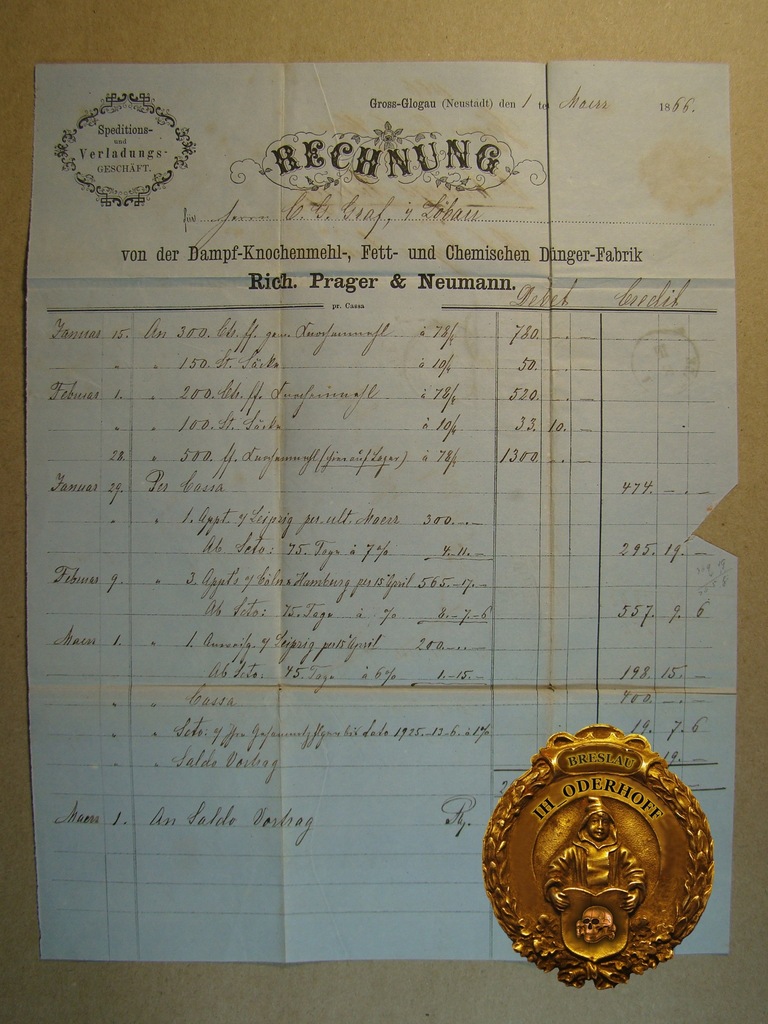 Gross-Glogau (Neustadt) den 1 ten Maerz 1866.
Speditions-
und
Verladungs-
GESCHÄFT.
RECHNUNG
für Herrn C. G. Graf, Löbau
von der Dampf-Knochenmehl-, Fett- und Chemischen Dünger-Fabrik
Rich. Prager & Neumann.
pr. Cassa
Debet Credit
Januar 15. An 300. Ctr. ff. Knochenmehl à 78/ 780. -
" " 150. St. Säcke à 10/ 50. -
Februar 1. " 200. Ctr. ff. Knochenmehl à 78/ 520. -
" " 100. St. Säcke à 10/ 33. 10. -
28. " 500. ff. Knochenmehl (hier auf Lager) à 78/ 1300. -
Januar 29. Per Cassa 474. - -
" " 1. Appt. Leipzig per ult. Maerz 300. - -
Ab Scto: 75. Tage à 7% 4. 11. - 295. 19. -
Februar 9. " 3. Appts Cöln & Hamburg per 15 April 565. 17. -
Ab Scto: 75. Tage à % 8. - 7. - 6 557. 9. 6
Maerz 1. " 1. Anweisg. Leipzig per 15 April 200. - -
Ab Scto: 45. Tage à 6% 1. - 15. - 198. 15. -
" " Cassa 400. - -
" " Scto: dato 1925. 13. 6. à 1% 19. 7. 6
" " Saldo Vortrag 19. -
Maerz 1. An Saldo Vortrag
BRESLAU
IH_ODERHOFF